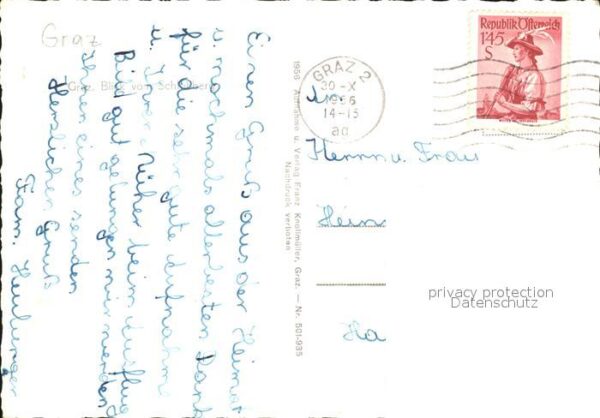 Graz
Graz. Blick vom
Einen Gruß aus der Heimat
u. nochmals allerbesten Dank
für die sehr gute Aufnahme
u. Ihrer Mühe beim Ausflug
Bild gut gelungen wir werden
Ihnen eines senden
Herzlichen Gruß
Fam.
1956 Aufnahme u. Verlag Franz Knollmüller, Graz. — Nr. 501-935
Nachdruck verboten
GRAZ 2
30.-X
1956
14-15
Republik Österreich
1'45
S
An
Herrn u. Frau
Hein
Ha
privacy protection
Datenschutz